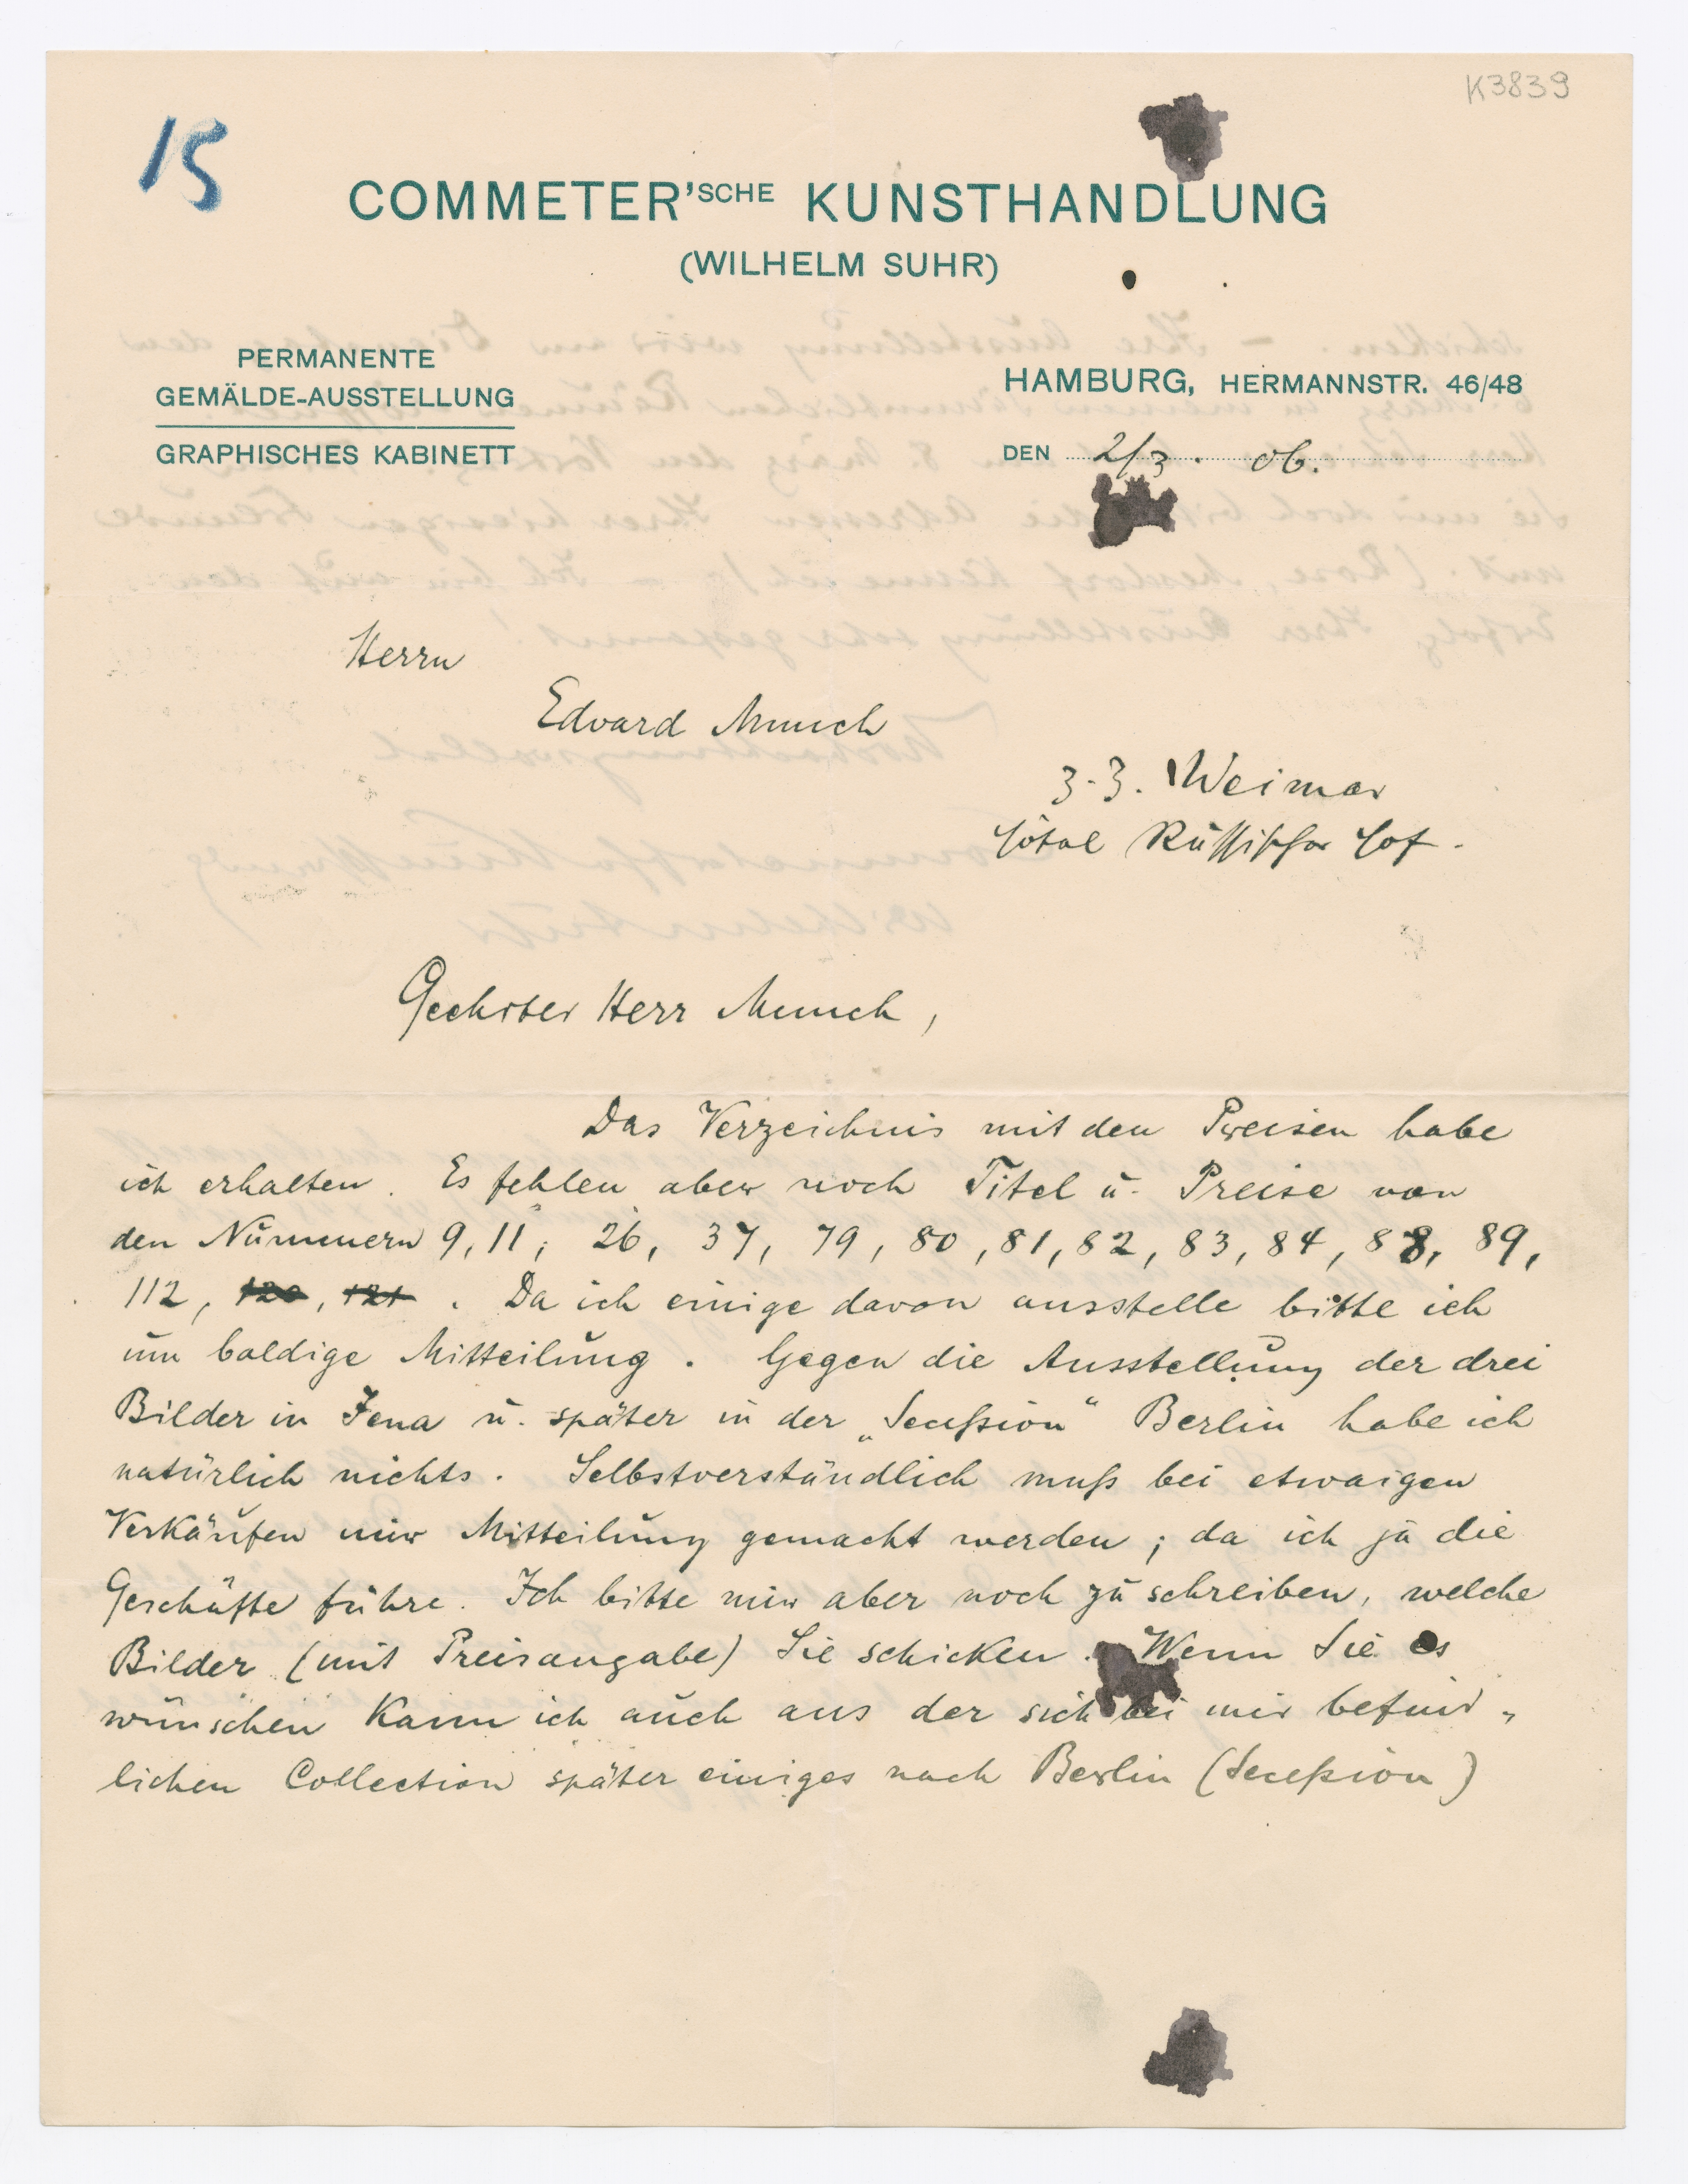 K3839
15
COMMETER'SCHE KUNSTHANDLUNG
(WILHELM SUHR)
PERMANENTE
GEMÄLDE-AUSSTELLUNG
GRAPHISCHES KABINETT
HAMBURG, HERMANNSTR. 46/48
DEN 2/3. 06.
Herrn
Edvard Munch
z. Z. Weimar
Hôtel Russischer Hof.
Geehrter Herr Munch,
Das Verzeichnis mit den Preisen habe
ich erhalten. Es fehlen aber noch Titel u. Preise von
den Nummern 9, 11, 26, 37, 79, 80, 81, 82, 83, 84, 88, 89,
112, 120, 121. Da ich einige davon ausstelle bitte ich
um baldige Mitteilung. Gegen die Ausstellung der drei
Bilder in Jena u. später in der „Secession“ Berlin habe ich
natürlich nichts. Selbstverständlich muß bei etwaigen
Verkäufen mir Mitteilung gemacht werden; da ich ja die
Geschäfte führe. Ich bitte mir aber noch zu schreiben, welche
Bilder (mit Preisangabe) Sie schicken. Wenn Sie es
wünschen kann ich auch aus der sich bei mir befind-
lichen Collection später einiges nach Berlin (Secession)